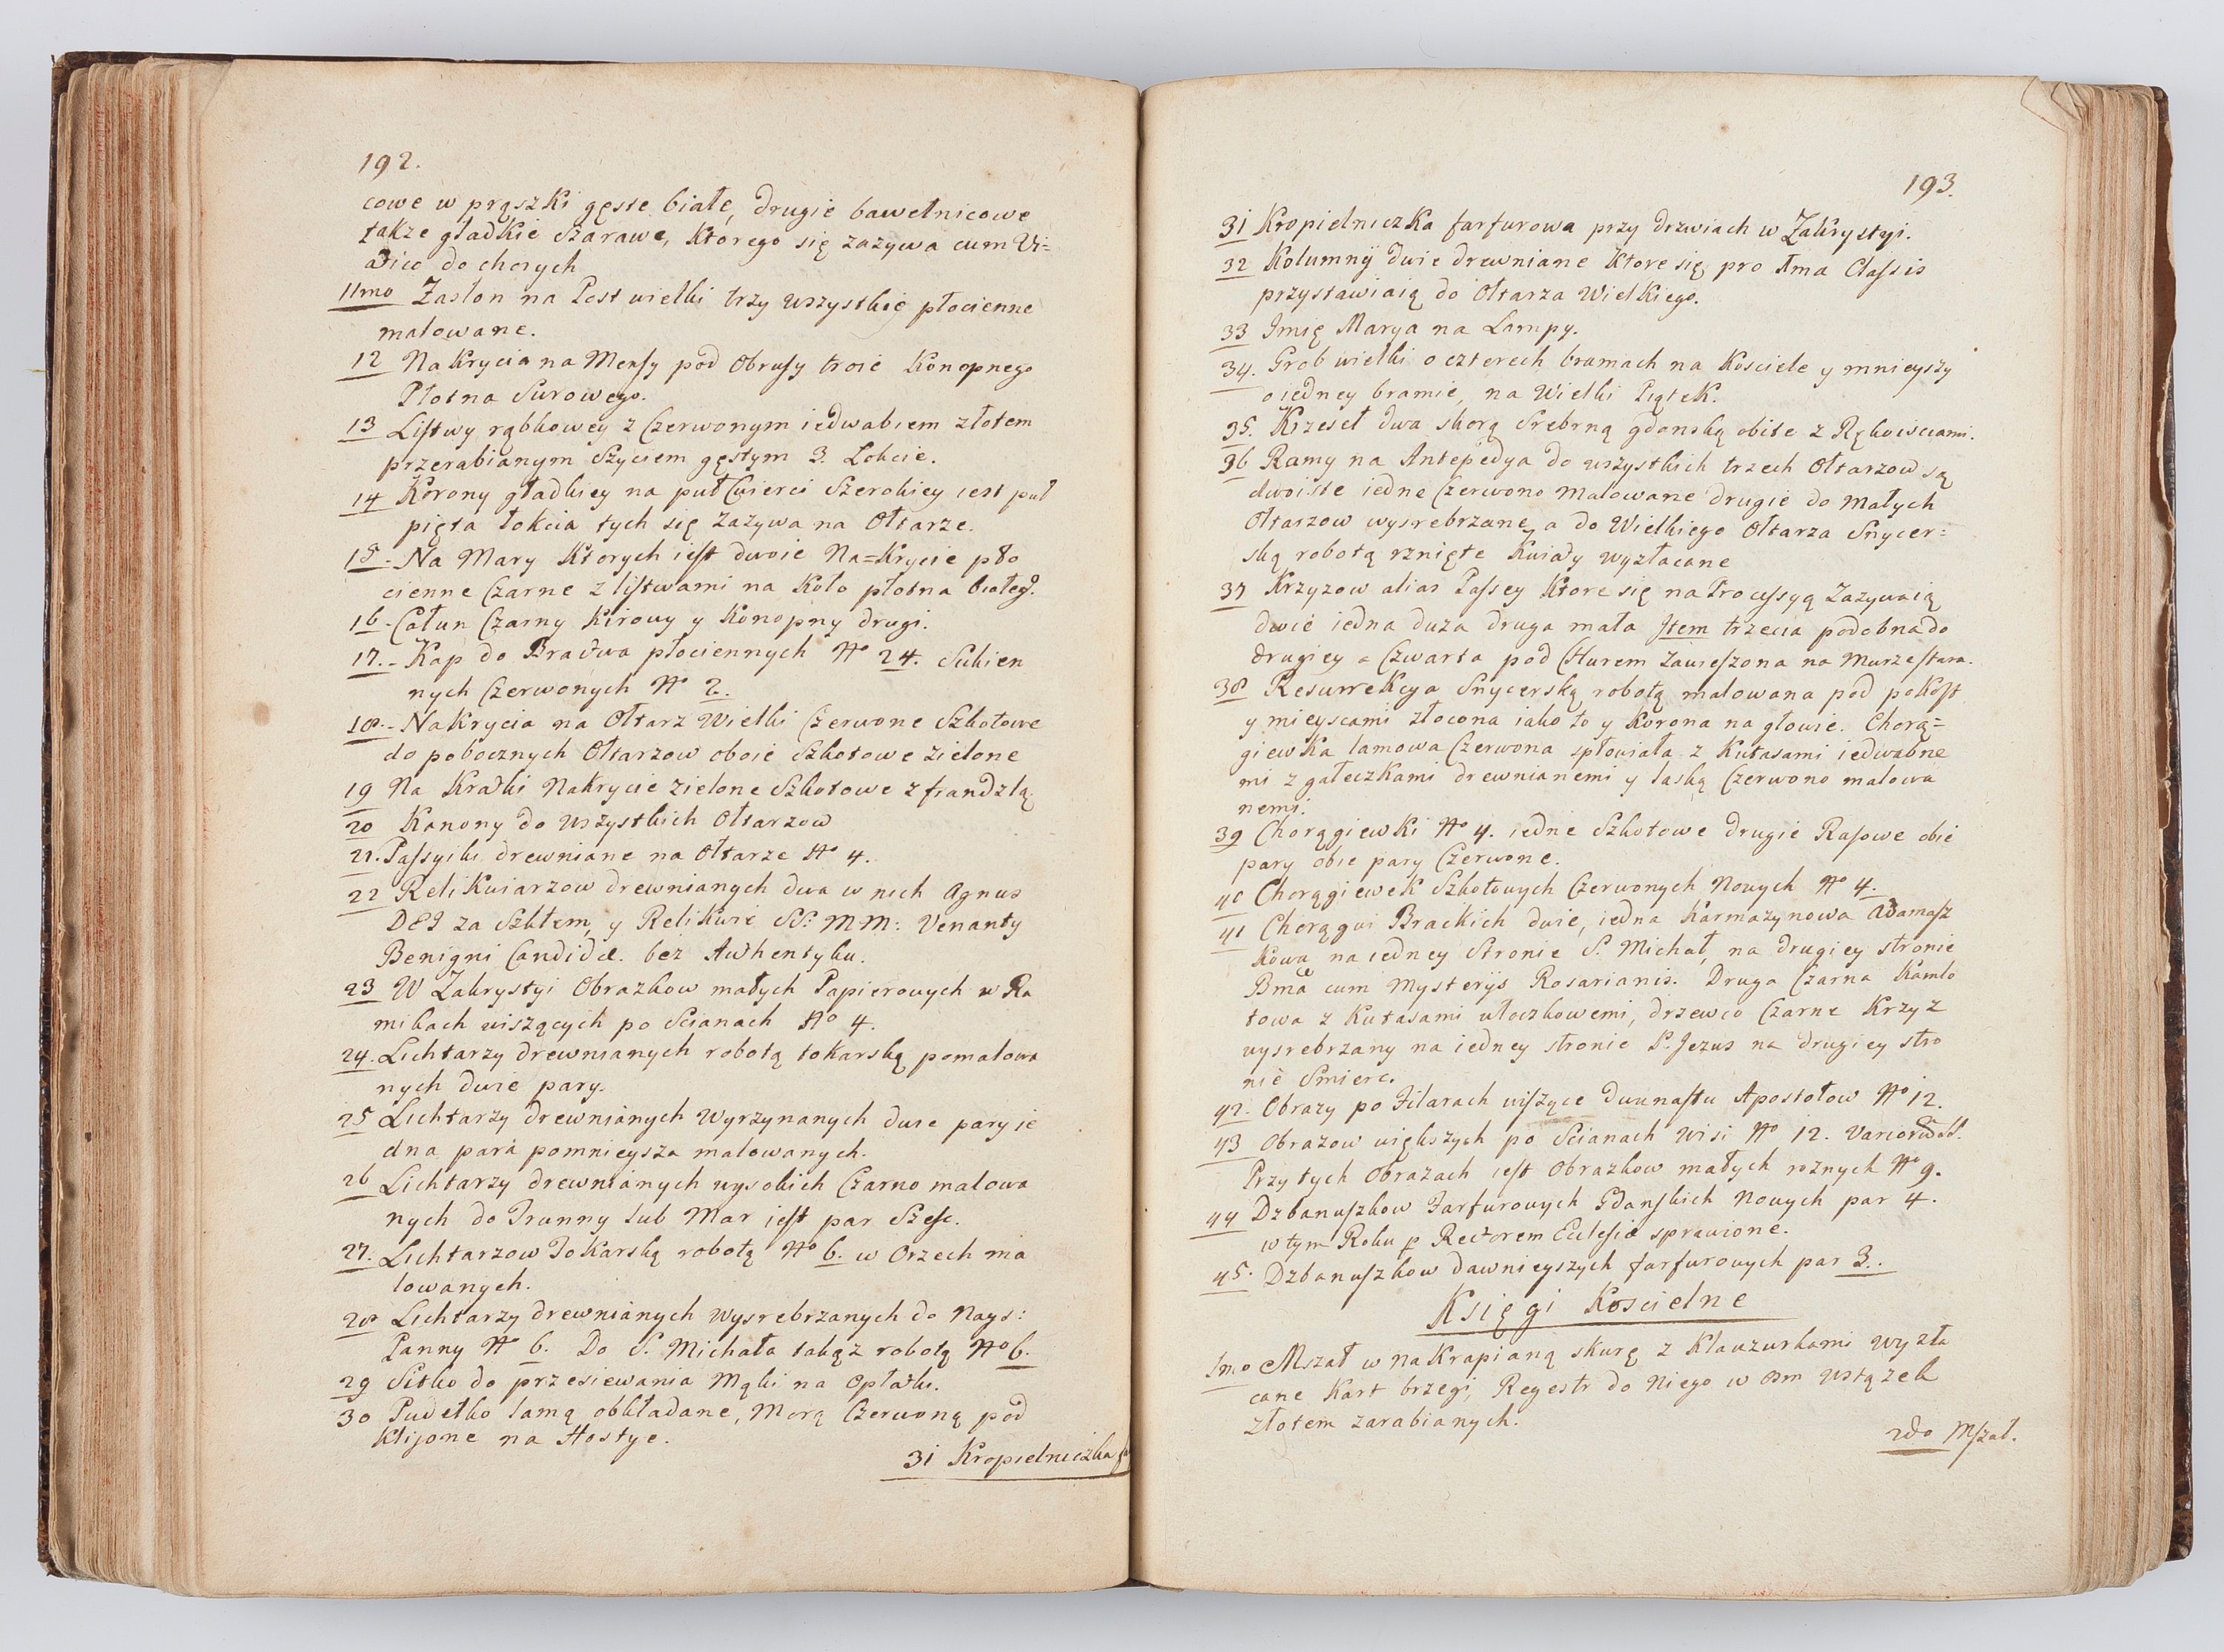 192.
cowe w prąszki gęste białe, drugie bawełnicowe
także gładkie Szarawe, Ktorego się zazywa cum Vi=
atico do chorych
11mo Zasłon na Post wielki trzy wszystkie płocienne
malowane.
12 Nakrycia na Mensy pod Obrusy troie Konopnego
Płotna Surowego.
13 Listwy rąbkowey z Czerwonym iedwabiem złotem
przerabianym Szyciem gęstym 3. Łokcie.
14 Korony gładkiey na puł Cwierci Szerokiey iest puł
pięta łokcia tych się zazywa na Ołtarze.
15 - Na Mary Ktorych iest dwoie Na=Krycie pło
cienne Czarne z listwami na Koło płotna białeg?
16 - Całun Czarny Kirowy y Konopny drugi.
17. - Kap do Bractwa płociennych No 24. Sukien
nych Czerwonych No 2.
18. - Nakrycia na Ołtarz Wielki Czerwone Szkotowe
do pobocznych Ołtarzow oboie Szkotowe zielone
19 Na Kratki Nakrycie zielone Szkotowe z frandzlą
20 Kanony do wszystkich Ołtarzow
21. Passyiki drewniane na Ołtarze No 4.
22 Relikwiarzow drewnianych dwa w nich Agnus
DEI za Szkłem, y Relikwie SS: MM: Venanty
Benigni Candidæ. bez Authentyku.
23 W Zakrystyi Obrazkow małych Papierowych w Ra
mikach wiszących po Scianach No 4.
24. Lichtarzy drewnianych robotą tokarską pomalowa
nych dwie pary.
25 Lichtarzy drewnianych Wyrzynanych dwie pary ie
dna para pomnieysza malowanych.
26 Lichtarzy drewnianych wysokich Czarno malowa
nych do Trunny lub Mar iest par Szesc.
27. Lichtarzow Tokarską robotą No 6. w Orzech ma
lowanych.
28 Lichtarzy drewnianych wysrebrzanych do Nays:
Panny No 6. Do S. Michała takąz robotą No 6.
29 Sitko do przesiewania Mąki na Opłatki.
30 Pudełko lamą obkładane, Morą Czerwoną pod
Klijone na Hostye.
31 Kropielniczka
193.
31 Kropielniczka farfurowa przy drzwiach w Zakrystyi.
32 Kolumny dwie drewniane Ktore się pro 1ma Classis
przystawiaią do Ołtarza Wielkiego.
33 Imię Marya na Lampy.
34. Grob wielki o czterech bramach na Kosciele y mnieyszy
o iedney bramie, na Wielki Piątek.
35. Krzeseł dwa skorą Srebrną gdanską obite z Rękoisciami.
36 Ramy na Antepedya do wszystkich trzech Ołtarzow są
dwoiste iedne Czerwono malowane drugie do Małych
Ołtarzow wysrebrzane, a do Wielkiego Ołtarza Snycer=
ską robotą rznięte Kwiaty wyzłacane
37 Krzyzow alias Passey Ktore się na Processyą Zazywaią
dwie iedna duza druga mała Item trzecia podobna do
drugiey a Czwarta pod Churem zawieszona na Murze stara.
38 Resurrekcya Snycerską robotą malowana pod pokost
y mieyscami złocona iako to y Korona na głowie. Chorą=
giewka lamowa Czerwona spłowiała z Kutasami iedwabne
mi z gałeczkami drewnianemi y laską Czerwono malowa
nemi.
39 Chorągiewki No 4. iedne Szkotowe drugie Rasowe obie
pary obie pary Czerwone.
40 Chorągiewek Szkotowych Czerwonych Nowych No 4.
41 Chorągwi Brackich dwie, iedna Karmazynowa Adamasz
kowa na iedney Stronie S. Michał, na drugiey stronie
Bma cum Mysteryjs Rosarianis. Druga Czarna Kamlo
towa z Kutasami włoczkowemi, drzewco Czarne Krzyz
wysrebrzany na iedney stronie P. Jezus na drugiey stro
nie Smierc.
42. Obrazy po Filarach wiszące dwunastu Apostołow No 12.
43 Obrazow większych po Scianach wisi No 12. Variorum SS.
Przy tych Obrazach iest Obrazkow małych roznych No 9.
44 Dzbanuszkow Farfurowych Gdanskich Nowych par 4.
w tym Roku p Rectorem Eclesiæ sprawione.
45. Dzbanuszkow dawnieyszych farfurowych par 3..
Księgi Koscielne
1mo Mszał w nakrapianą skurę z Klauzurkami wyzła
cane Kart brzegi, Regestr do Niego w osm wstązek
złotem zarabianych.
2do Mszał.